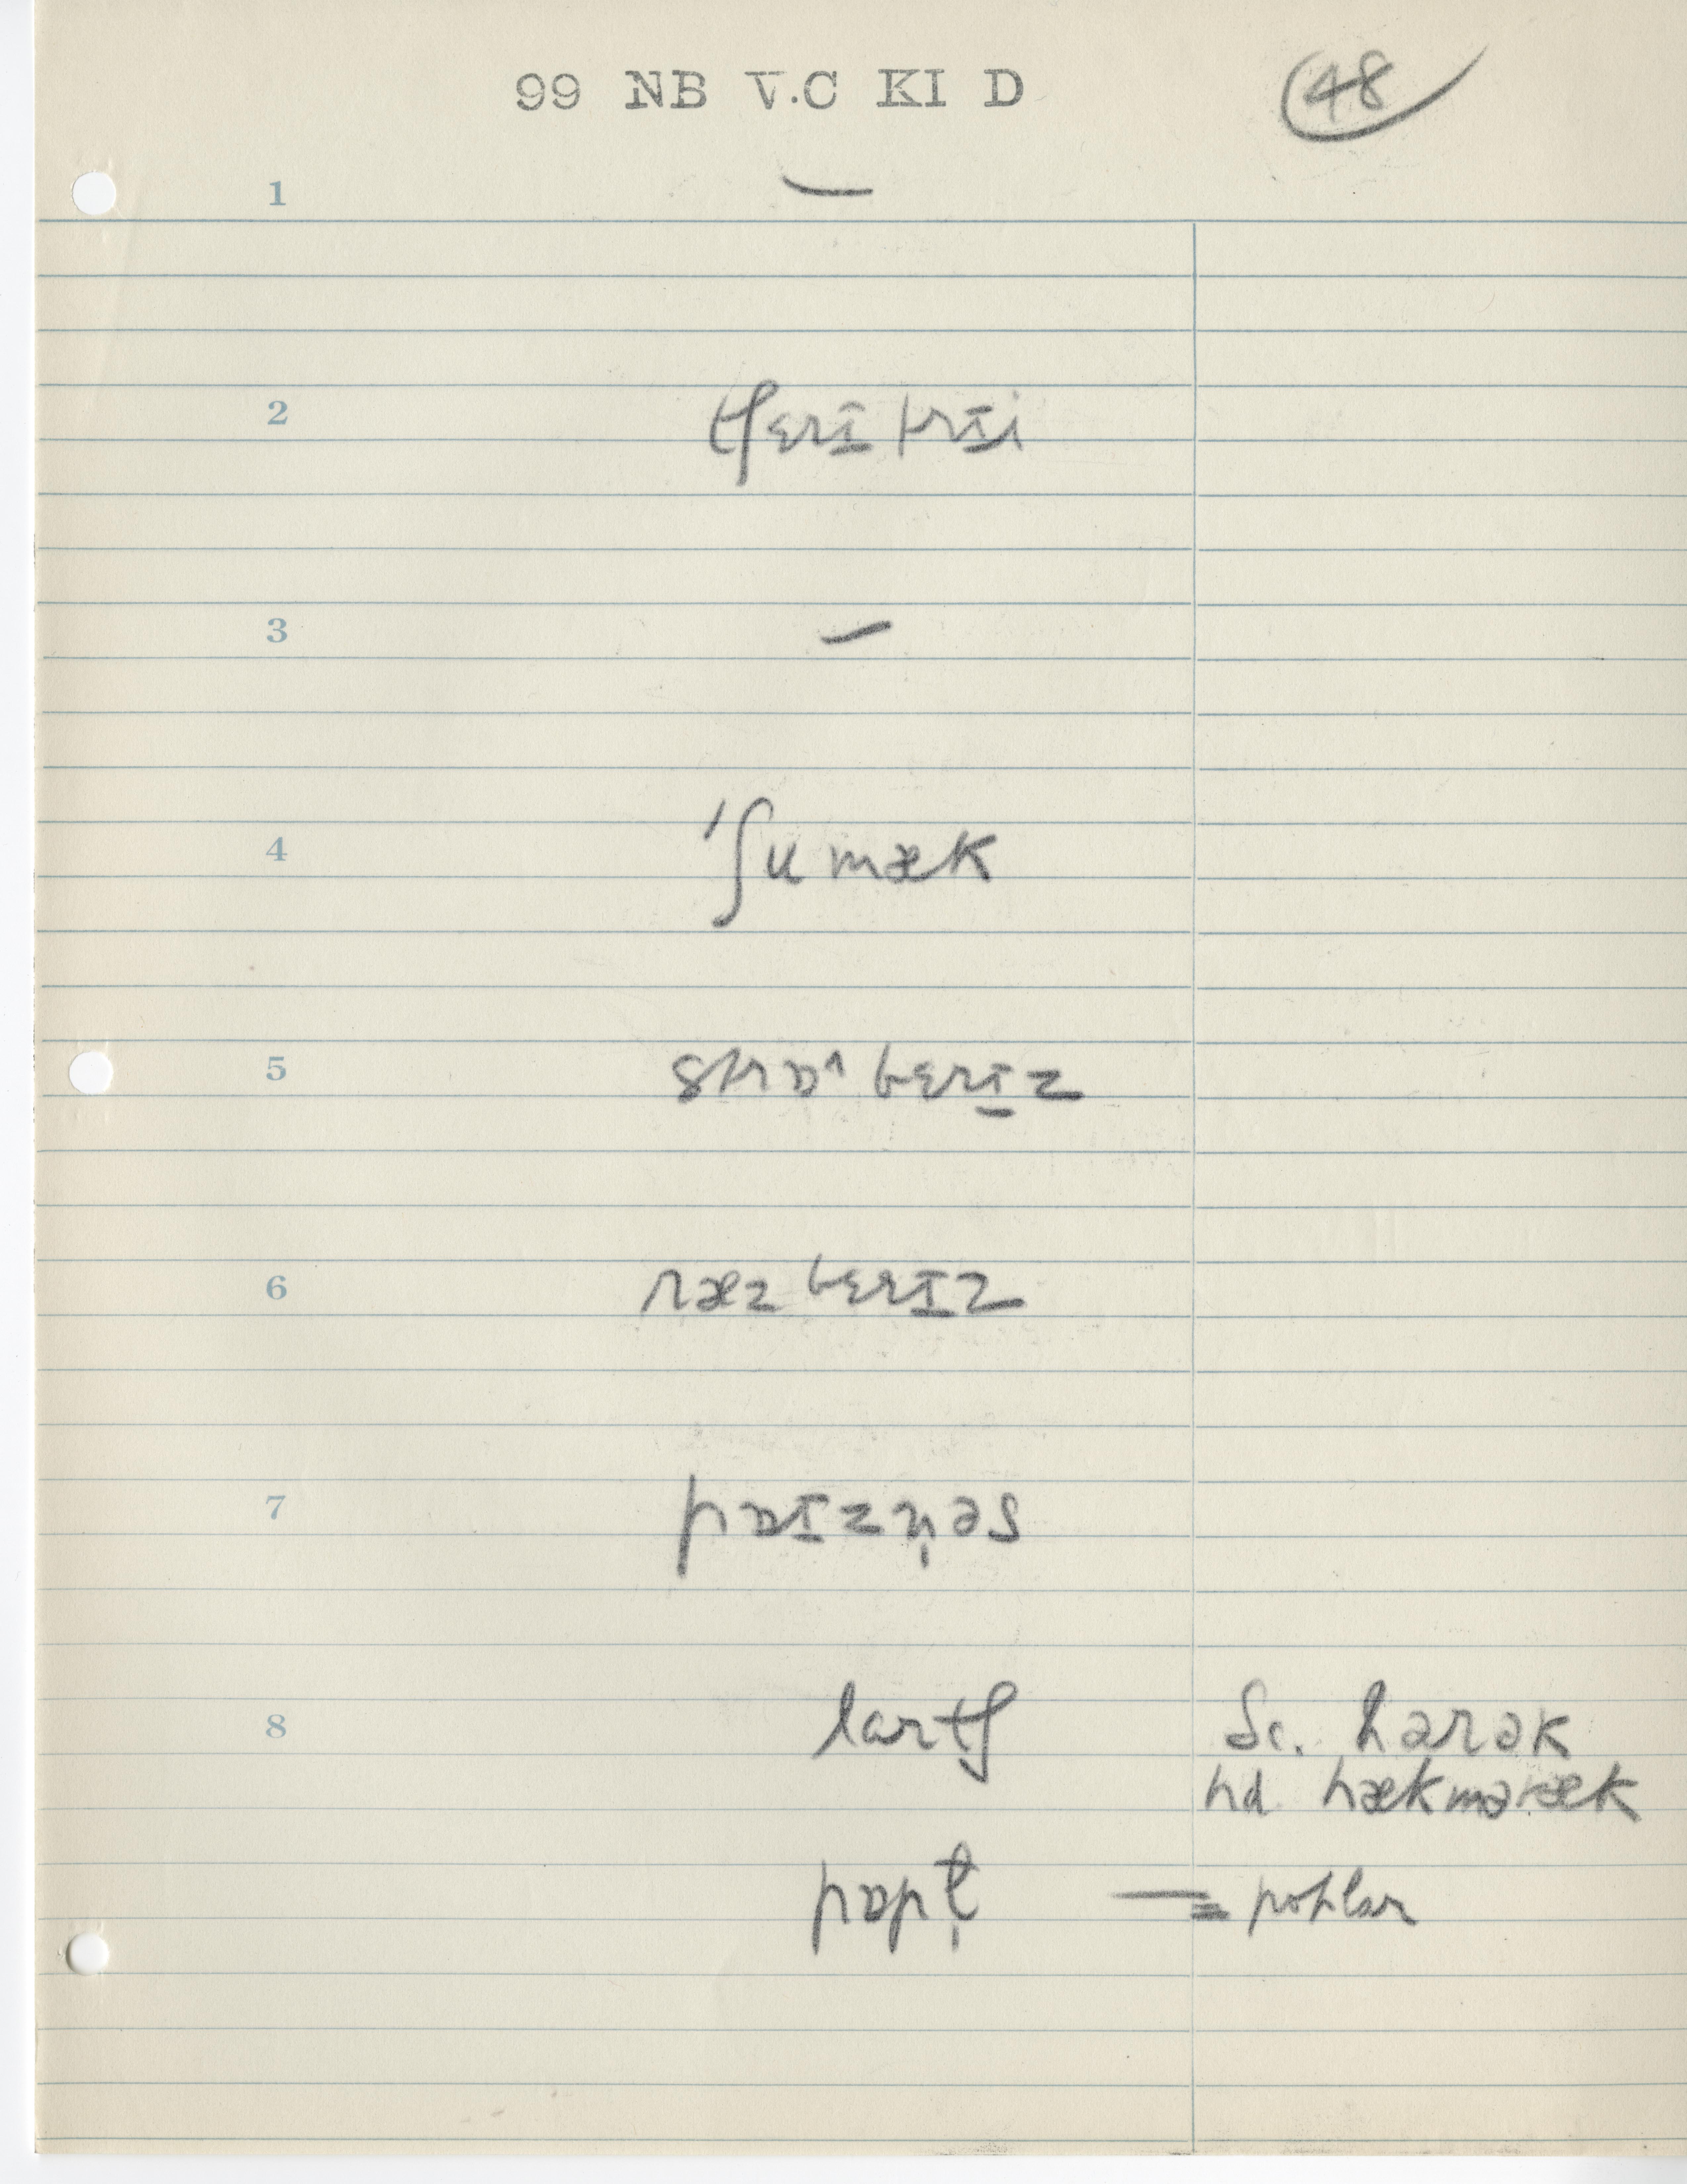 99 NB V.C KI D
48
1 —
2 tʃɛrɪ̂ trɪi
3 —
4 ˈʃumæk
5 strɒ^ bɛrɪz
6 ræz bɛrɪz
7 pɒɪzn̩əs
8 lartʃ Sc. harək
hd hækmaræk
pɒpl̩ = poplar